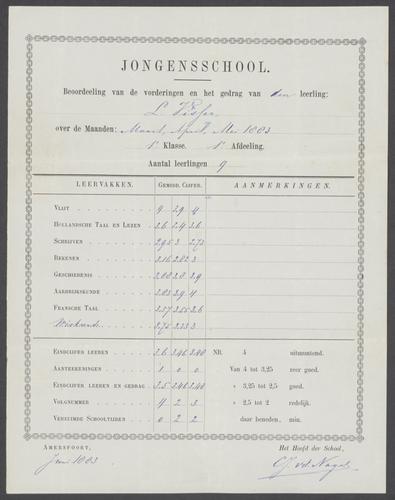 JONGENSSCHOOL.
Beoordeeling van de vorderingen en het gedrag van den leerling:
L. Visser
over de Maanden: Maart, April, Mei 1883
1e Klasse. 1e Afdeeling.
Aantal leerlingen 9
LEERVAKKEN. GEMIDD. CIJFER. AANMERKINGEN.
VLIJT 4 3.9 4
HOLLANDSCHE TAAL EN LEZEN 3.6 3.4 3.6
SCHRIJVEN 2.95 3 2.73
REKENEN 3.16 3.02 3
GESCHIEDENIS 3.9
AARDRIJKSKUNDE 3.9 4
FRANSCHE TAAL 3.57 3.55 3.6
Wiskunde 3.75 3.33 3
EINDCIJFER LEEREN 3.6 3.46 3.40 NB. 4 uitmuntend.
AANTEEKENINGEN 1 0 0 Van 4 tot 3,25 zeer goed.
EINDCIJFER LEEREN EN GEDRAG 3.5 3.46 3.40 " 3,25 tot 2,5 goed.
VOLGNUMMER 4 2 3 " 2,5 tot 2 redelijk.
VERZUIMDE SCHOOLTIJDEN 0 2 2 daar beneden, min.
AMERSFOORT, Het Hoofd der School,
Juni 1883